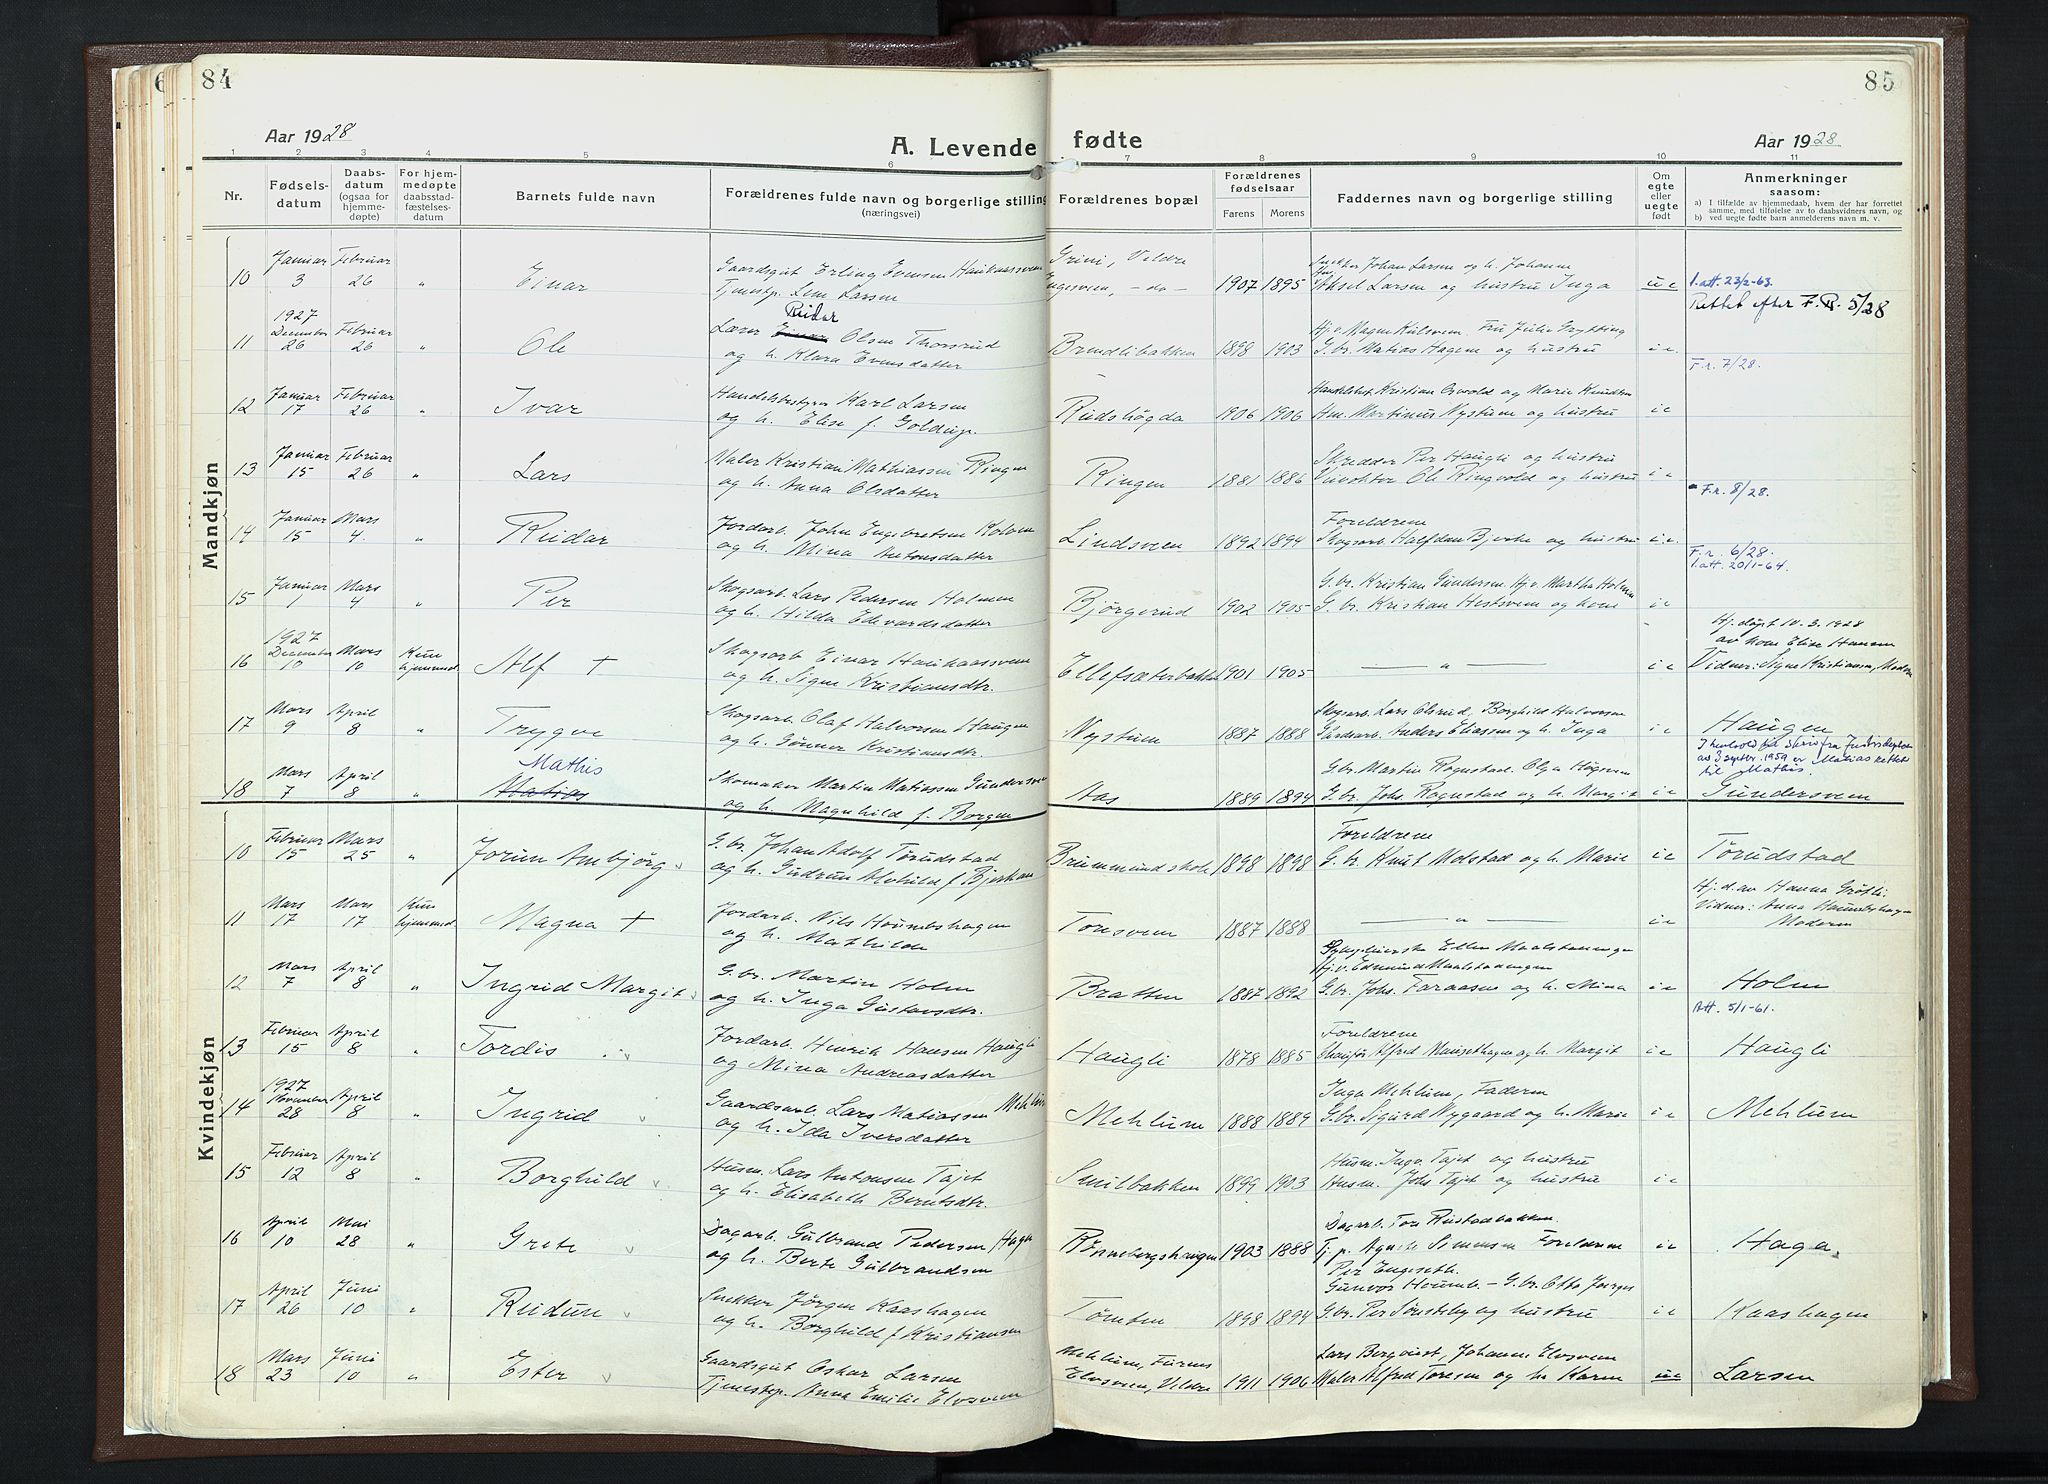 84
85
Aar 1928
A. Levende fødte
Aar 1928
1 2 3 4 5 6 7 8 9 10 11
Nr.
Fødsels-
datum
Daabs-
datum
(ogsaa for
hjemme-
døpte)
For hjem-
medøpte
daabsstad-
fæstelses-
datum
Barnets fulde navn
Forældrenes fulde navn og borgerlige stilling
(næringsvei)
Forældrenes bopæl
Forældrenes
fødselsaar
Farens Morens
Faddernes navn og borgerlige stilling
Om
egte
eller
uegte
født
Anmerkninger
saasom:
a) I tilfælde av hjemmedaab, hvem der har forrettet
samme, med tilføielse av to daabsvidners navn, og
b) ved uegte fødte barn anmelderens navn m. v.
Mandkjøn
Januar Februar Gaardsgut Erling Evensen Haukaassveen Grini, Veldre Snekker Johan Larsen og h. Johanne
10 3 26 " Einar Tjenestp. Lene Larsen Engesveen, - do - 1907 1895 Aksel Larsen og hustru Inga u e l. att. 23/2-63.
Rettet efter F. R. 5/28
1927 Reidar
December Februar Lærer Einar Olsen Thorsrud Hj. v. Magna Kulsveen. Fru Julie Grytting
11 26 26 " Ole og h. Klara Evensdatter Brendlibakken 1898 1903 G. br. Matias Hagen og hustru i e.
F. r. 7/28.
Januar Februar Handelsbestyrer Karl Larsen Kristian Oswold og Marie Knudsen
12 17 26 " Ivar og h. Elise f. Rudshøgda 1906 1906 Hm. Martinus Nystuen og hustru i e
Januar Februar Maler Kristian Mathiassen Ringen Skredder Per Haugli og hustru
13 15 26 " Lars og h. Anna Olsdatter Ringen 1881 1886 Ole Ringvold og hustru i e
F. r. 8/28.
Januar Mars Jordarb. John Engebretsen Kolven Foreldrene
14 15 4. " Reidar og h. Mina Antonsdatter Lindsveen 1892 1894 Skogsarb. Halfdan Bjerke og hustru i e.
F. r. 6/28.
l. att. 20/1-64.
Januar Mars Skogsarb. Lars Pedersen Holmen G. br. Kristian Gundersen. Hj. v. Martha Holmen
15 1 4 " Per og h. Hilda Edevardsdatter Bjørgerud 1902 1905 G. br. Kristian Hestsveen og kone i e
1927 Hj. døpt 10. 3. 1928
December Mars Kun Skogsarb Einar Haukaassveen av kone Elise Hansen
16 10 10 hjemmed. Alf + og h. Signe Kristiansdtr. Ellefsæterbakken 1901 1905 — " — i e Vidner: Signe Kristiansen, Moderen
Mars April Skogsarb. Olaf Halvorsen Haugen Skogsarb. Lars Olsrud, Borghild Halvorsen
17 9 8 " Trygve og h. Gunner Kristiansdtr. Nystuen 1887 1888 Gårdsarb. Anders Eliassen og h. Inga i e Haugen
I henhold til skriv fra Justisdeptem.
av 3 septbr. 1959 er Mathias rettet
til Mathis.
Mathis
Mars April Skomaker Martin Matiassen Gundersveen G. br. Martin Rognstad. Olga Høgsveen
18 7 8 " Matias og h. Magnhild f. Borgen Aas 1889 1894 G. br. Johs. Rognstad og h. Margit i e Gundersveen
Kvindekjøn
Februar Mars G. br. Johan Adolf Torudstad Foreldrene
10 15 25 " Jorun Ambjørg og h. Gudrun Alvhilde f. Bjerkan Brummund skole 1898 1898 G. br. Knut Molstad og h. Marie i e Torudstad
Mars Mars Kun Jordarb. Nils Houmbshagen Hj. d. av Hanna Grøtli.
11 17 17 hjemmed Magna + og h. Mathilde Toresveen 1887 1888 — " — i e Vidner: Anna Haumbshagen
Moderen
Mars April G. br. Martin Holm Sykepleierske Ellen Maalstadengen
Hj. v. Edmund Maalstadengen
12 7 8 " Ingrid Margit og h. Inga Gustavsdtr. Bratten 1887 1892 G. br. Johs. Faraasen og h. Mina i e Holm
Att. 5/1-61.
Februar April Jordarb. Henrik Hansen Haugli Foreldrene
13 15 8 " Tordis og Mina Andreasdatter Haugli 1878 1885 Chauffør Alfred Mausethagen og h. Margit i e Haugli
1927
November April Gaardsarb. Lars Matiassen Mehlum Inga Mehlum, Faderen
14 28 8 " Ingrid og h. Ida Iversdatter Mehlum 1888 1889 G. br. Sigurd Nygaard og h. Marie i e Mehlum
Februar April Husm. Lars Antonsen Tajet Husm. Ingv. Tajet og hustru
15 12 8 " Borghild og h. Elisabeth Berntsdtr. Smilbakken 1899 1903 Husm. Johs Tajet og hustru i e
April Mai Dagarb. Gulbrand Pedersen Hagen Dagarb. Tore Rustadbakken.
16 10 28 " Grete og h. Berte Gulbrandsen Rønnebergshaugen 1903 1888 Tj. p. Agnete Simensen Foreldrene i e Haga.
Per Engeseth.
April Juni Snekker Jørgen Kaashagen Gunvor Houmb. - G. br. Otto Jarges
17 26 10 " Reidun og h. Borghild f Kristiansen Tomten 1898 1894 G. br. Per Sørnsteby og hustru i e Kaashagen
Mars Juni Gaardsgut Oskar Larsen Mehlum, Furnes Lars Bergqvist, Johanne Elvsveen
18 23 10 " Ester Tjenestp. Anna Emilie Elvsveen Elvsveen, Veldre 1911 1906 Maler Alfred Toresen og h. Karen u e Larsen